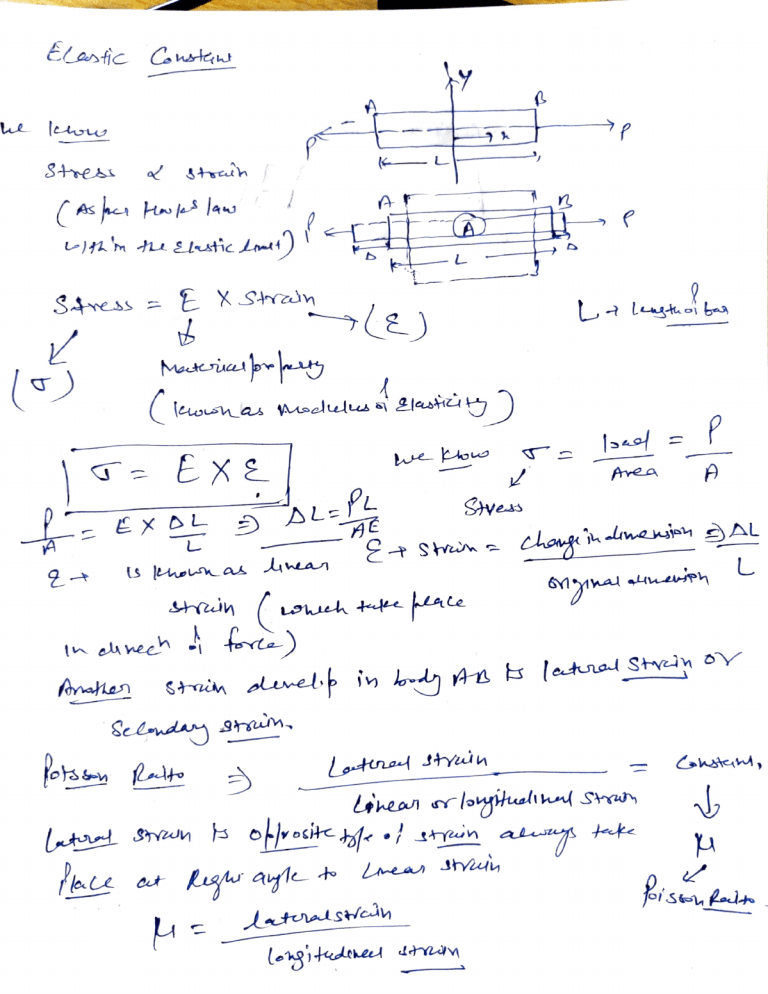 Elastic Constant
we know
Stress α strain
(As per Hooks law
within the Elastic limit)
y
A B
P P
x
L
A B
P P
A
Δ L Δ
Stress = E × Strain → (ε)
(σ)
L → length of bar
Material property
(known as modulus of Elasticity)
σ = E × ε
we know σ = load / Area = P / A
Stress
P/A = E × ΔL/L ⇒ ΔL = PL/AE
ε → Strain = change in dimension / original dimension ⇒ ΔL / L
ε → is known as linear
strain (which take place
in direcn of force)
Another strain develop in body AB is lateral strain or
Secondary strain.
Poisson Ratio ⇒ Lateral strain / Linear or longitudinal strain = Constant,
μ
Poisson Ratio
lateral strain is opposite type of strain always take
place at Right angle to linear strain
μ = lateral strain / longitudinal strain